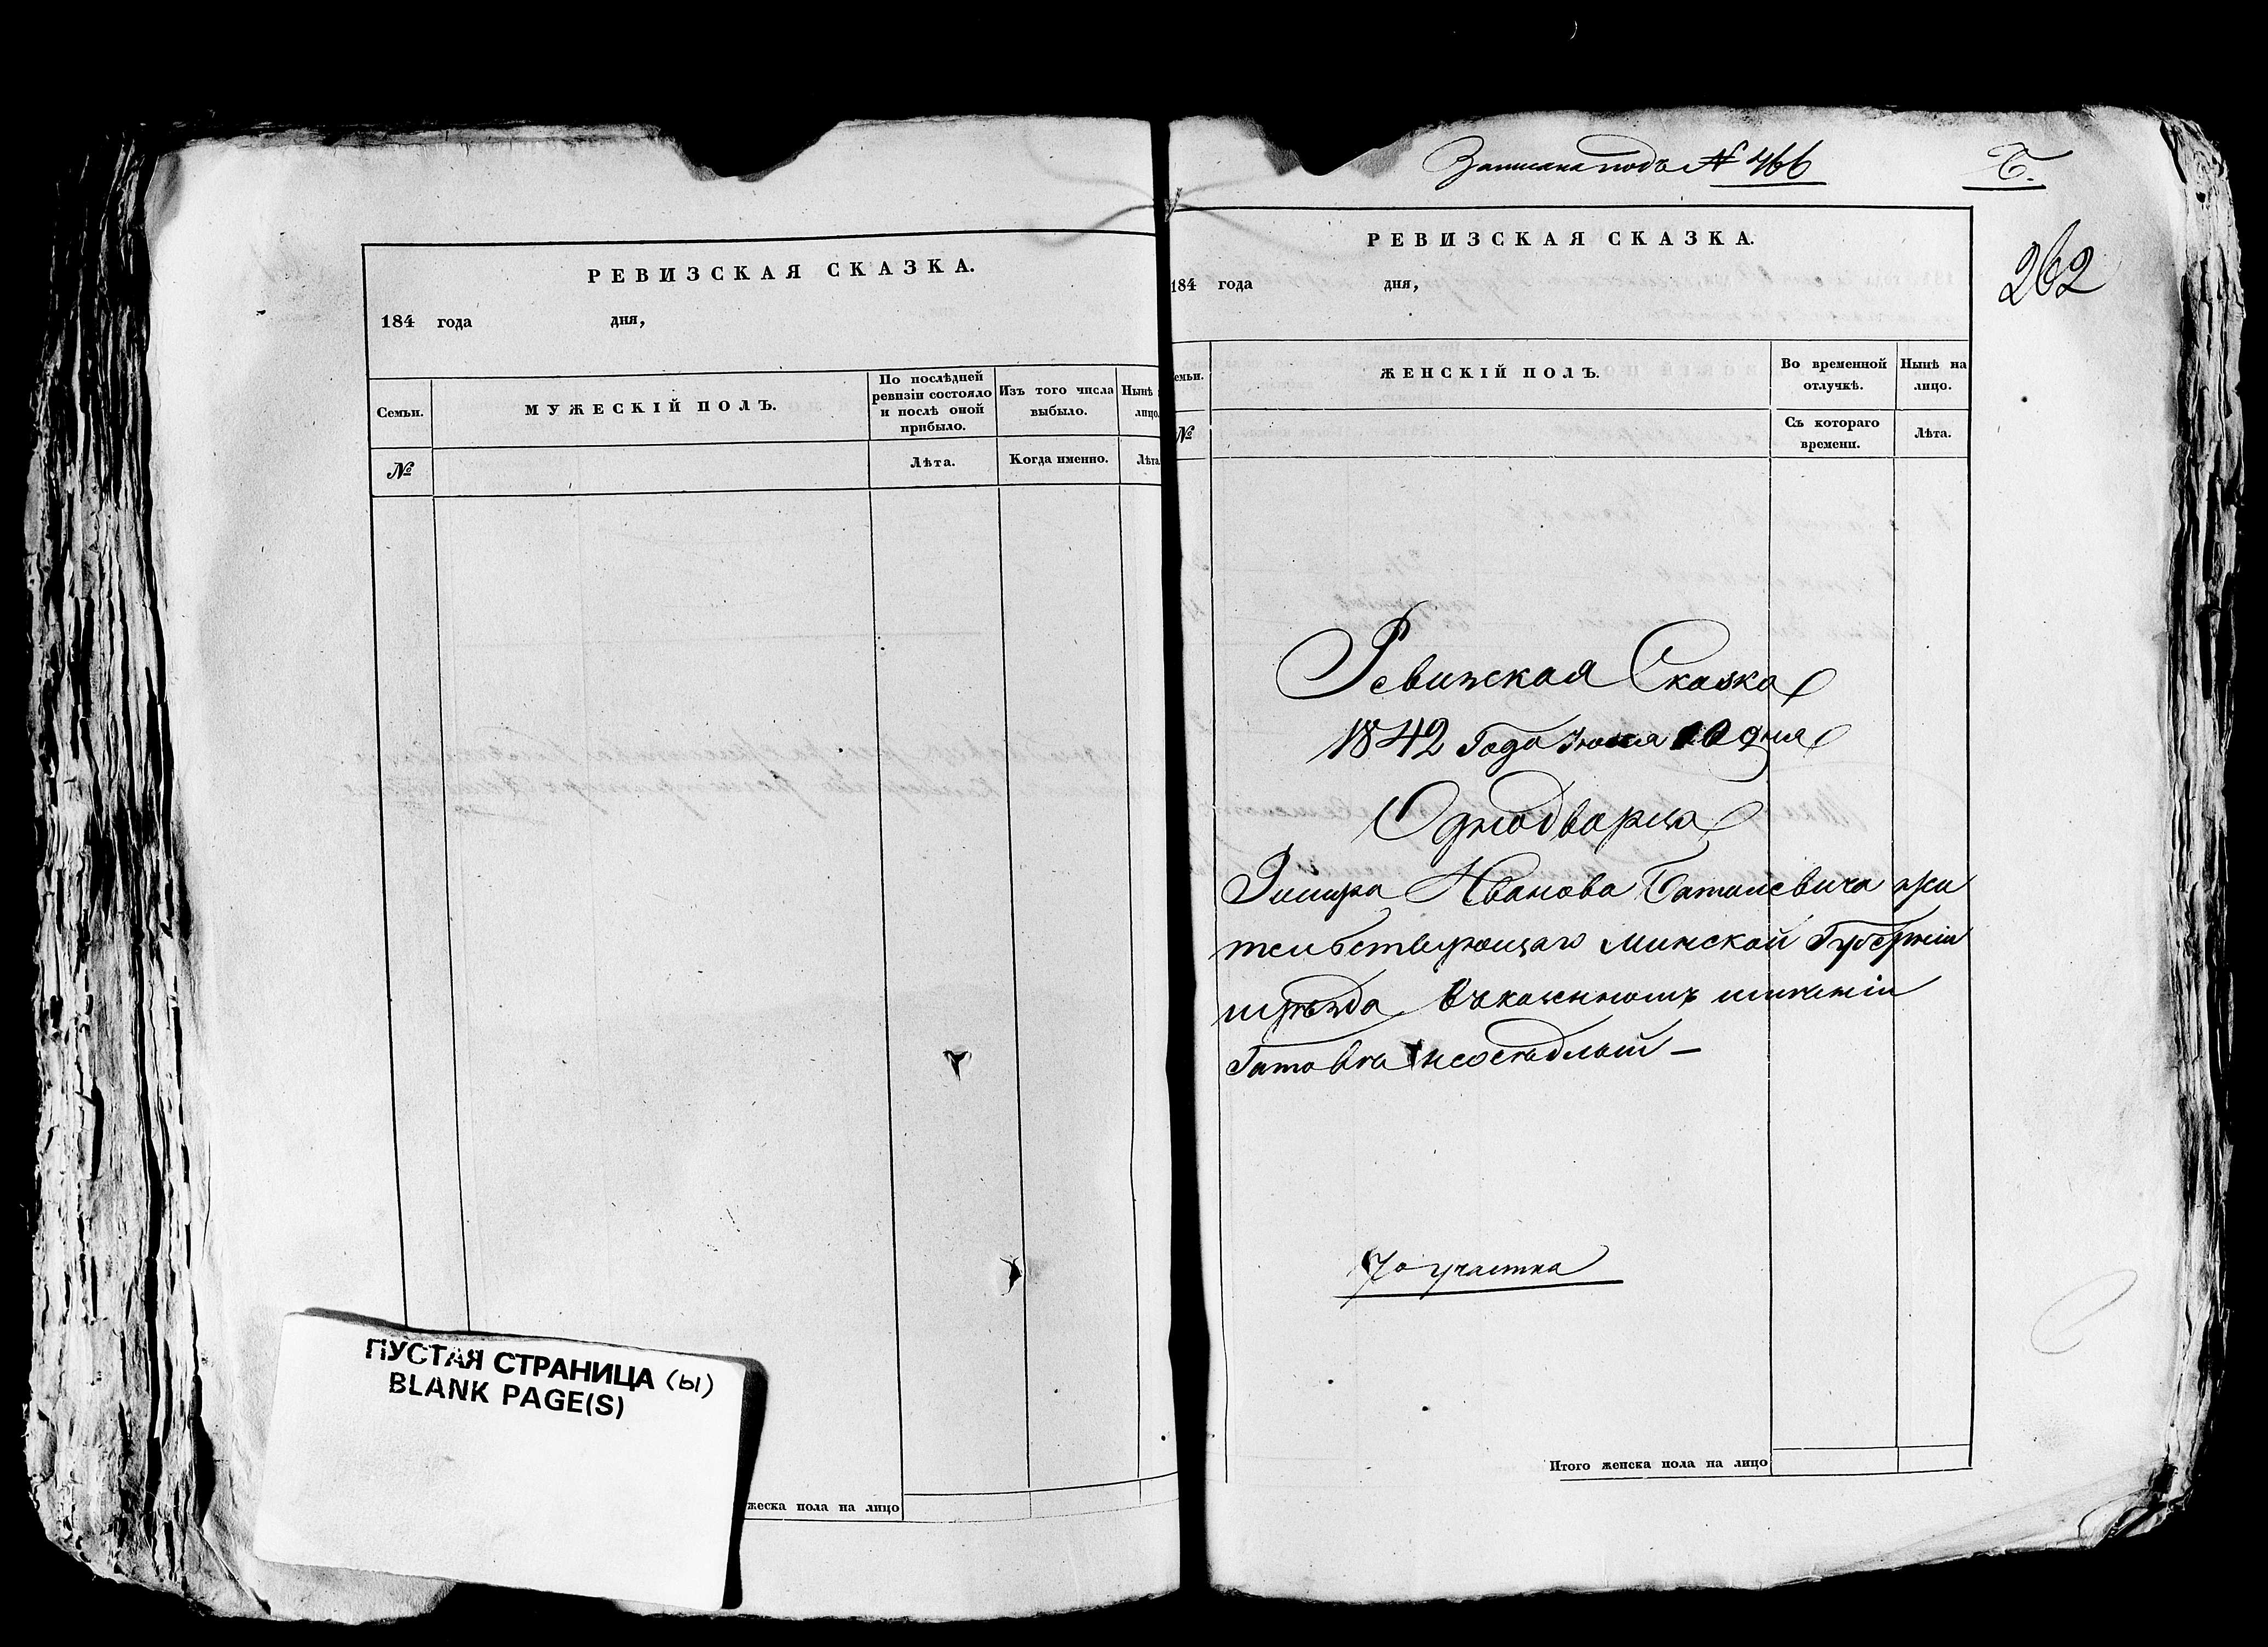 РЕВИЗСКАЯ СКАЗКА.
184 года дня,
Семьи.
МУЖЕСКІЙ ПОЛЪ.
По послѣдней
ревизіи состояло
и послѣ оной
прибыло.
Изъ того числа
выбыло.
Нынѣ
лицо
№
Лѣта.
Когда именно.
Лѣта
жеска пола на лицо
ПУСТАЯ СТРАНИЦА (Ы)
BLANK PAGE(S)
Записана подъ № 466
Б.
262
РЕВИЗСКАЯ СКАЗКА.
184 года дня,
емьи.
ЖЕНСКІЙ ПОЛЪ.
Во временной
отлучкѣ.
Нынѣ на
лицо.
№
Съ котораго
времени.
Лѣта.
Ревизская Сказка
1842 Года дня
Однодворца
Иванова жи
тельствующаго Минской Губерніи
уѣзда въ казенномъ имѣніи
неосѣдлый —
7о участка
Итого женска пола на лицо